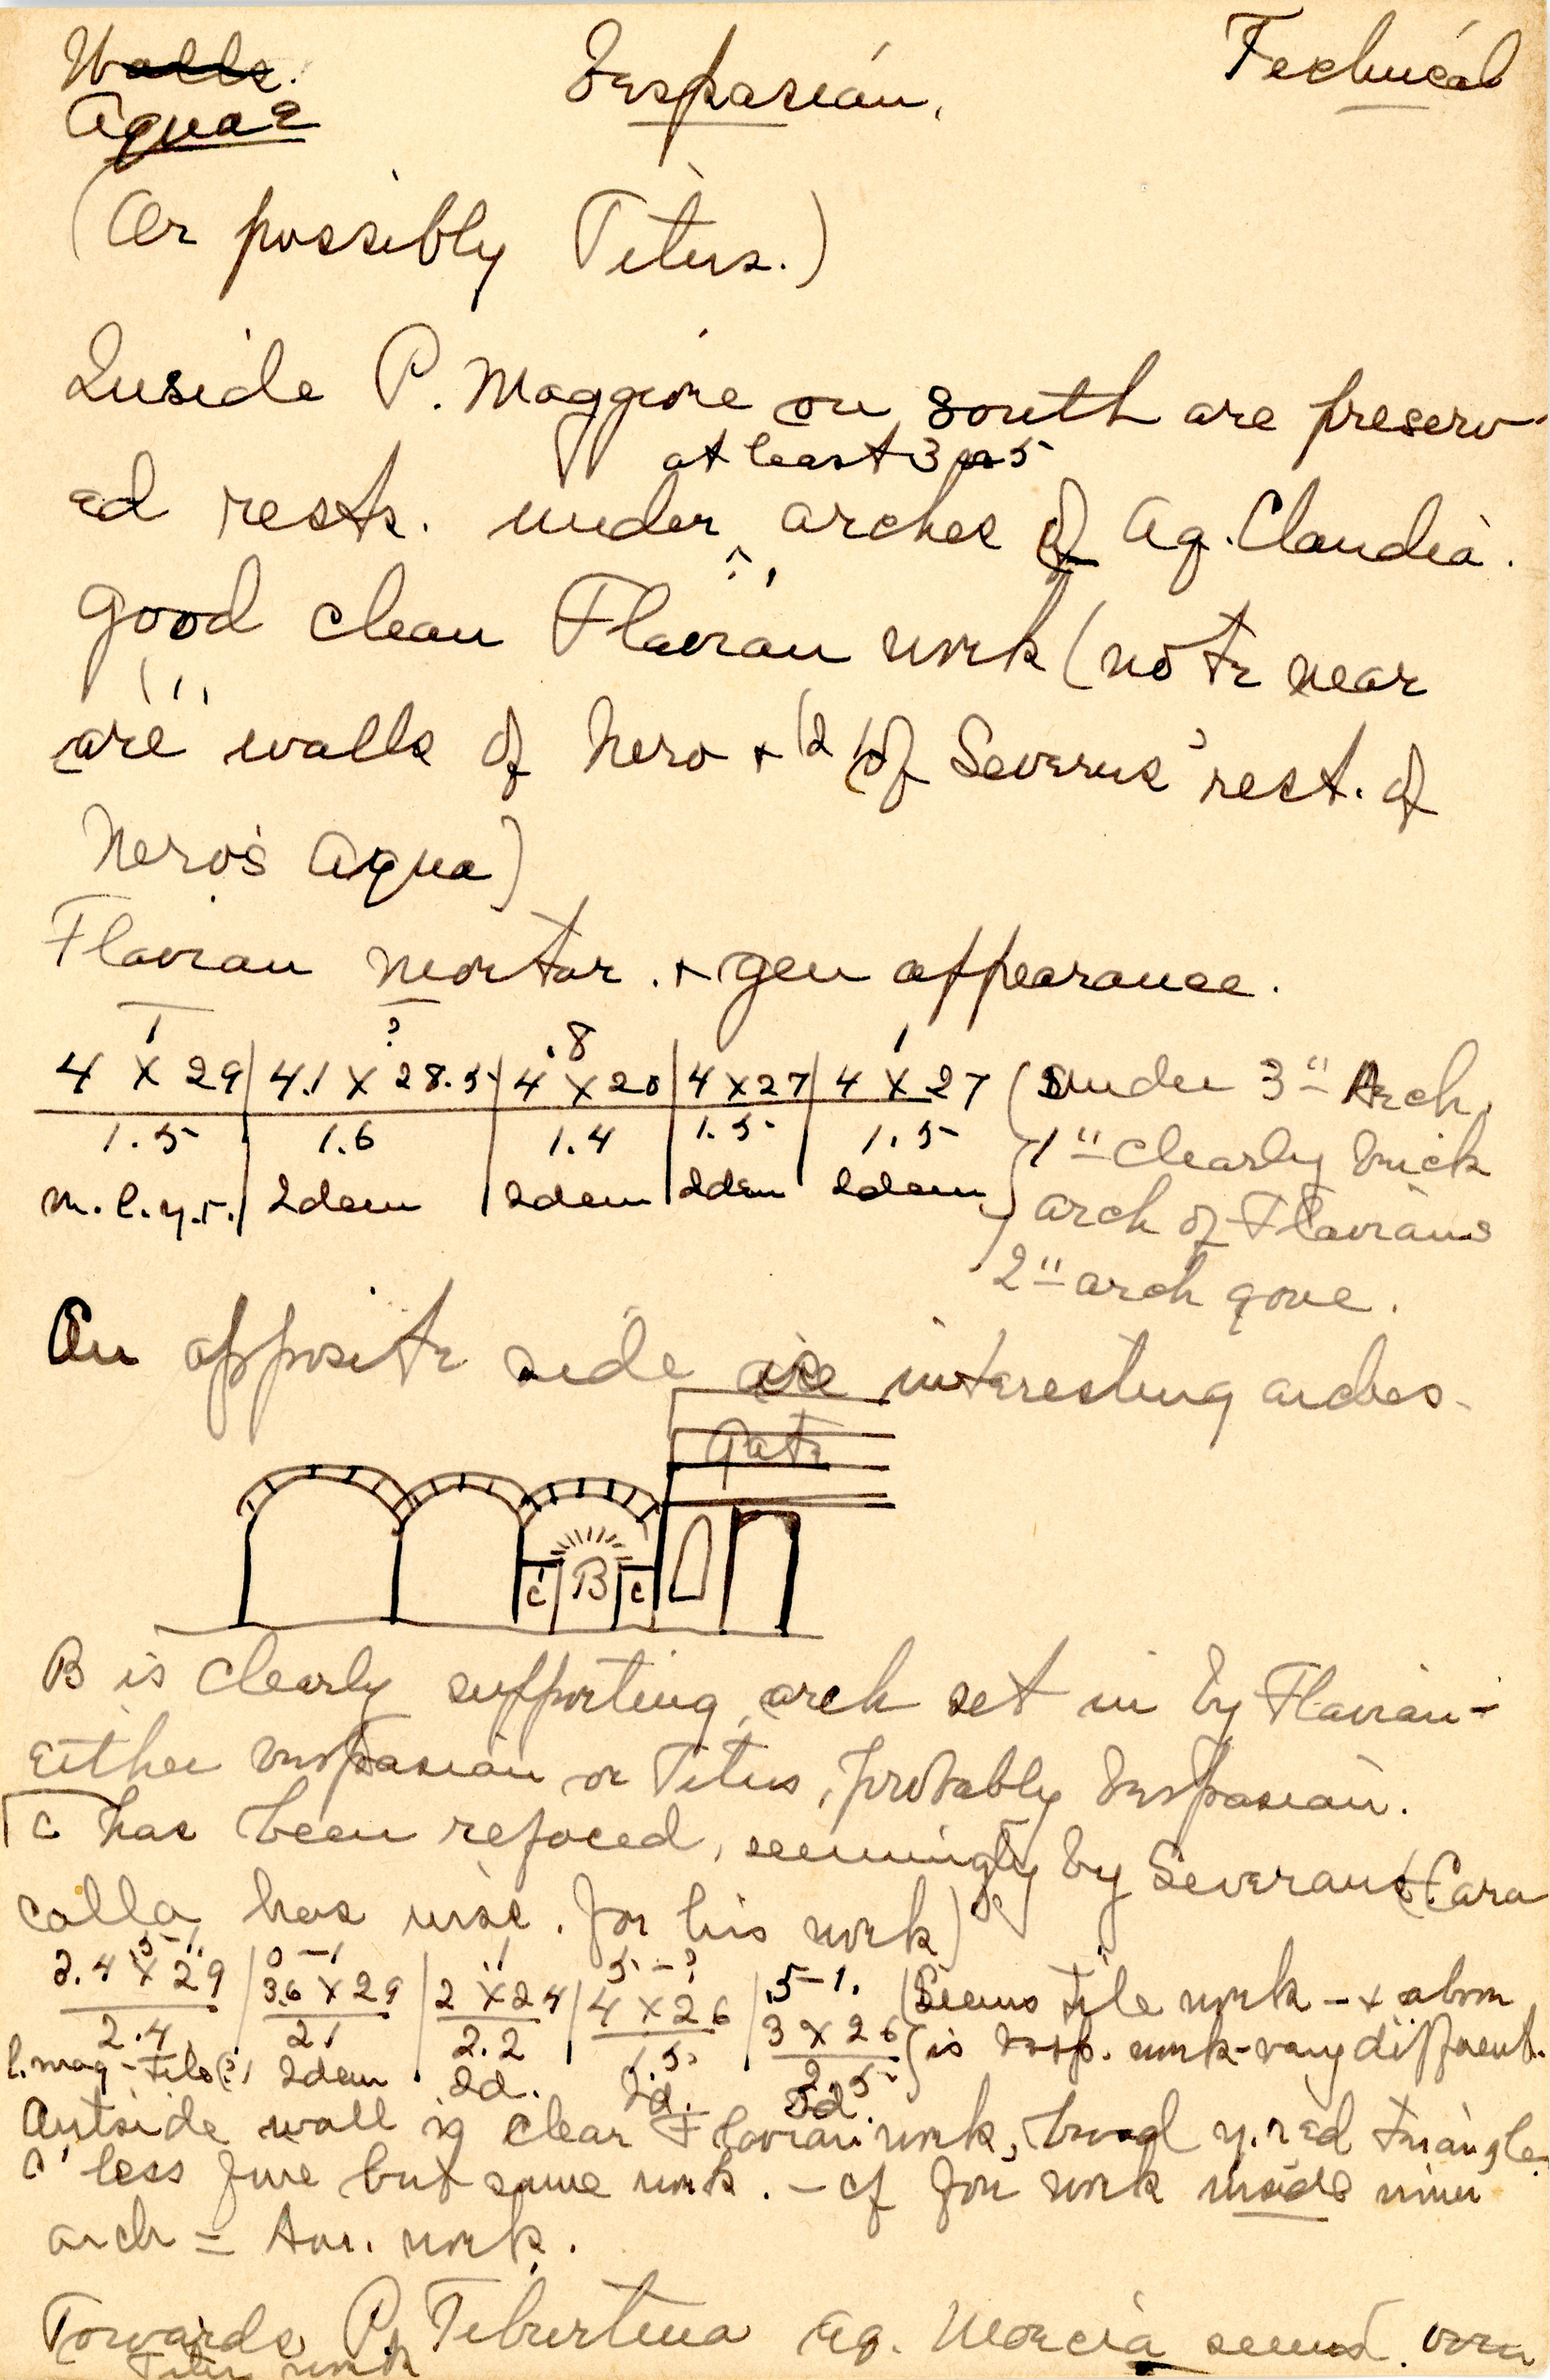 Walls. Vespasian. Technical
Aquae
(Or possibly Titus.)
Inside P. Maggiore on south are preserv-
at least 3 or 5
ed rests. under arches of Aq. Claudia.
good clean Flavian work (note near
are walls of Nero + (2) of Severus' rest. of
Nero's Aqua)
Flavian mortar. + gen appearance.
1 ? .8 1
4 X 29 | 4.1 X 28.5 | 4 X 20 | 4 X 27 | 4 X 27 (Under 3" Arch,
1.5 1.6 1.4 1.5 1.5 1" clearly brick
m.l.y.r. | Idem | Idem | Idem | Idem arch of Flavians
2" arch gone.
On opposite side are interesting arches.
Gate
c' B c
B is clearly supporting arch set in by Flavian-
Either Vespasian or Titus, probably Vespasian.
c has been refaced, seemingly by Severans (Cara
calla has insc. for his work)
.5-1. 0-1 1 .5-? .5-1.
2.4 X 29 | 3.6 X 29 | 2 X 24 | 4 X 26 | 3 X 26 (Seems tile work - + above
2.4 2.1 2.2 1.5 2.5 is Vesp. work-very different.
l. mag-tile(?) Idem Id. Id. Id.
Outside wall is clear Flavian work, broad y. red triangle.
c' less fine but same work. - cf for work inside
arch = work.
Towards P. Tiburtina Aq. Marcia
Titus work